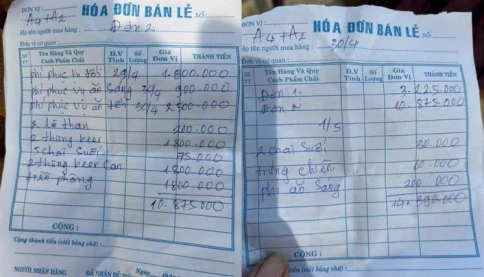 ĐƠN VỊ: A4 + A2
HÓA ĐƠN BÁN LẺ Số:
Họ tên người mua hàng: Đơn 2
Đơn vị cơ quan:
Số TT Tên Hàng Và Quy Cách Phẩm Chất Đ.V Tính Số Lượng Giá Đơn Vị THÀNH TIỀN
phí phục vụ tối 29/4 1.800.000
phí phục vụ ăn sáng 30/4 900.000
phí phục vụ ăn tối 30/4 2500.000
2 lò than 200.000
2 thùng beer 1800.000
5 chai suối 75.000
2 thùng beer Can 1800.000
tiền phòng 1800.000
10.875.000
CỘNG:
Cộng thành tiền (viết bằng chữ):
Ngày tháng
NGƯỜI NHẬN HÀNG ĐÃ NHẬN ĐỦ
ĐƠN VỊ: A4 + A2
HÓA ĐƠN BÁN LẺ Số:
Họ tên người mua hàng: 30/4
Đơn vị cơ quan:
Số TT Tên Hàng Và Quy Cách Phẩm Chất Đ.V Tính Số Lượng Giá Đơn Vị THÀNH TIỀN
Đơn 1. 3.225.000
Đơn 2 10.875.000
1/5
2 chai suối 30.000
trứng chiên 60.000
phí ăn sáng 200 000
14.390.000
CỘNG:
Cộng thành tiền (viết bằng chữ):